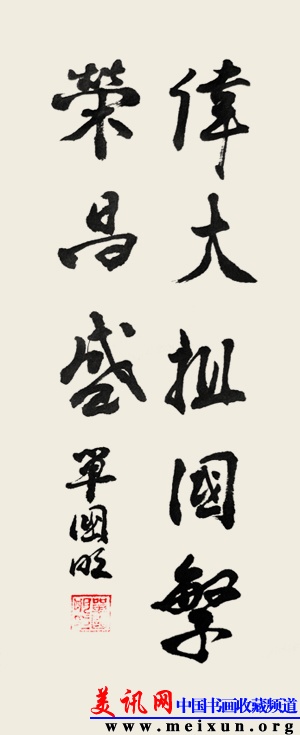 偉大祖國繁
榮昌盛
單國
美讯网 中国书画收藏频道
www.meixun.org